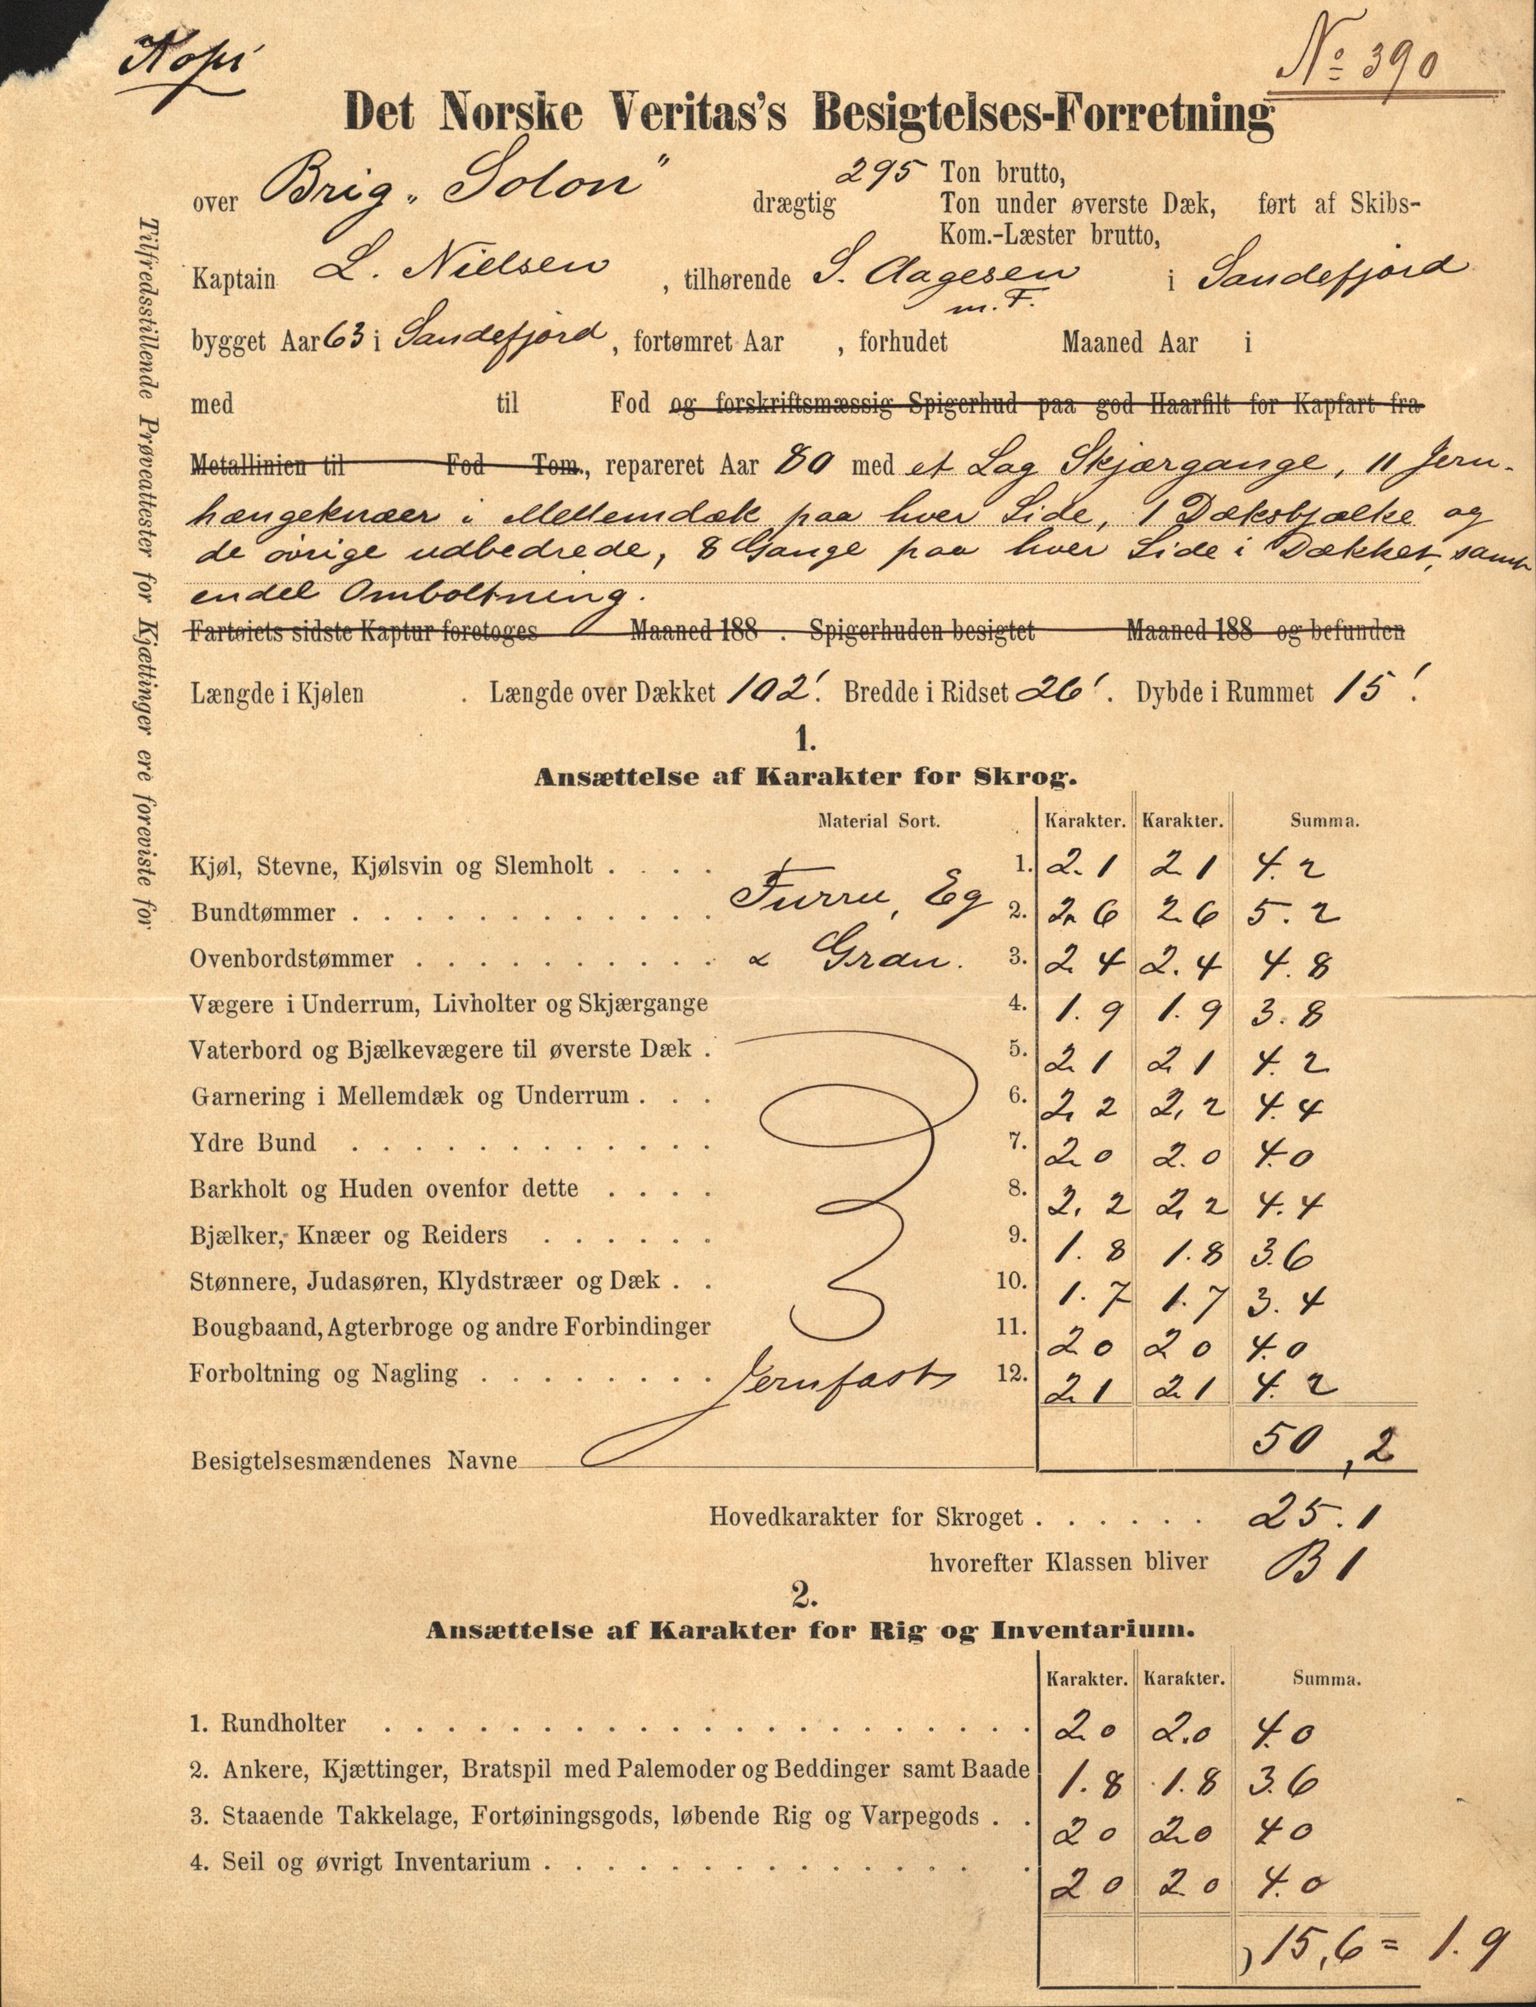 Kopi
No 390
Det Norske Veritas's Besigtelses-Forretning
over Brig „Solon" drægtig 295 Ton brutto,
Ton under øverste Dæk, ført af Skibs-
Kom.-Læster brutto,
Kaptain L. Nielsen, tilhørende S. Aagesen i Sandefjord
m. F.
bygget Aar 63 i Sandefjord, fortømret Aar , forhudet Maaned Aar i
med til Fod og forskriftsmæssig Spigerhud paa god Haarfilt for Kapfart fra
Metallinien til Fod Tom., repareret Aar 80 med et Lag Skjærgange, 11 Jern-
hængeknæer i Mellemdæk paa hver Side, 1 Dæksbjælke og
de øvrige udbedrede, 8 Gange paa hver Side i Dækket, samt
endel Omboltning.
Fartøiets sidste Kaptur foretoges Maaned 188 . Spigerhuden besigtet Maaned 188 og befunden
Længde i Kjølen . Længde over Dækket 102'. Bredde i Ridset 26'. Dybde i Rummet 15'.
Tilfredsstillende Prøveattester for Kjættinger ere foreviste for
1.
Ansættelse af Karakter for Skrog.
Material Sort. Karakter. Karakter. Summa.
Kjøl, Stevne, Kjølsvin og Slemholt . . . . 1. 2.1 2.1 4.2
Bundtømmer . . . . . . . . . . . . Furru, Eg 2. 2.6 2.6 5.2
Ovenbordstømmer . . . . . . . . . . & Gran. 3. 2.4 2.4 4.8
Vægere i Underrum, Livholter og Skjærgange 4. 1.9 1.9 3.8
Vaterbord og Bjælkevægere til øverste Dæk . 5. 2.1 2.1 4.2
Garnering i Mellemdæk og Underrum . . . 6. 2.2 2.2 4.4
Ydre Bund . . . . . . . . . . . . 7. 2.0 2.0 4.0
Barkholt og Huden ovenfor dette . . . . 8. 2.2 2.2 4.4
Bjælker, Knæer og Reiders . . . . . . 9. 1.8 1.8 3.6
Stønnere, Judasøren, Klydstræer og Dæk . . 10. 1.7 1.7 3.4
Bougbaand, Agterbroge og andre Forbindinger 11. 2.0 2.0 4.0
Forboltning og Nagling . . . . . . . . Jernfast 12. 2.1 2.1 4.2
50,2
Besigtelsesmændenes Navne
Hovedkarakter for Skroget . . . . . . 25.1
hvorefter Klassen bliver B 1
2.
Ansættelse af Karakter for Rig og Inventarium.
Karakter. Karakter. Summa.
1. Rundholter . . . . . . . . . . . . . . . . 2.0 2.0 4.0
2. Ankere, Kjættinger, Bratspil med Palemoder og Beddinger samt Baade 1.8 1.8 3.6
3. Staaende Takkelage, Fortøiningsgods, løbende Rig og Varpegods . . 2.0 2.0 4.0
4. Seil og øvrigt Inventarium . . . . . . . . . . . 2.0 2.0 4.0
15,6 = 1.9